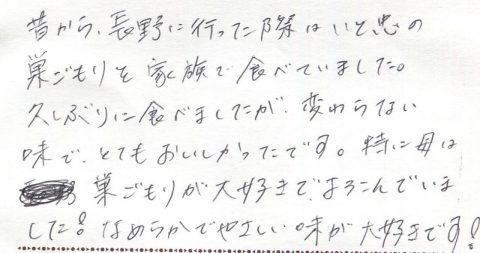 昔から、長野に行った際はいと忠の
巣ごもりを家族で食べていました。
久しぶりに食べましたが、変わらない
味で、とてもおいしかったです。特に母は
巣ごもりが大好きで、よろこんでいま
した!なめらかでやさしい味が大好きです!